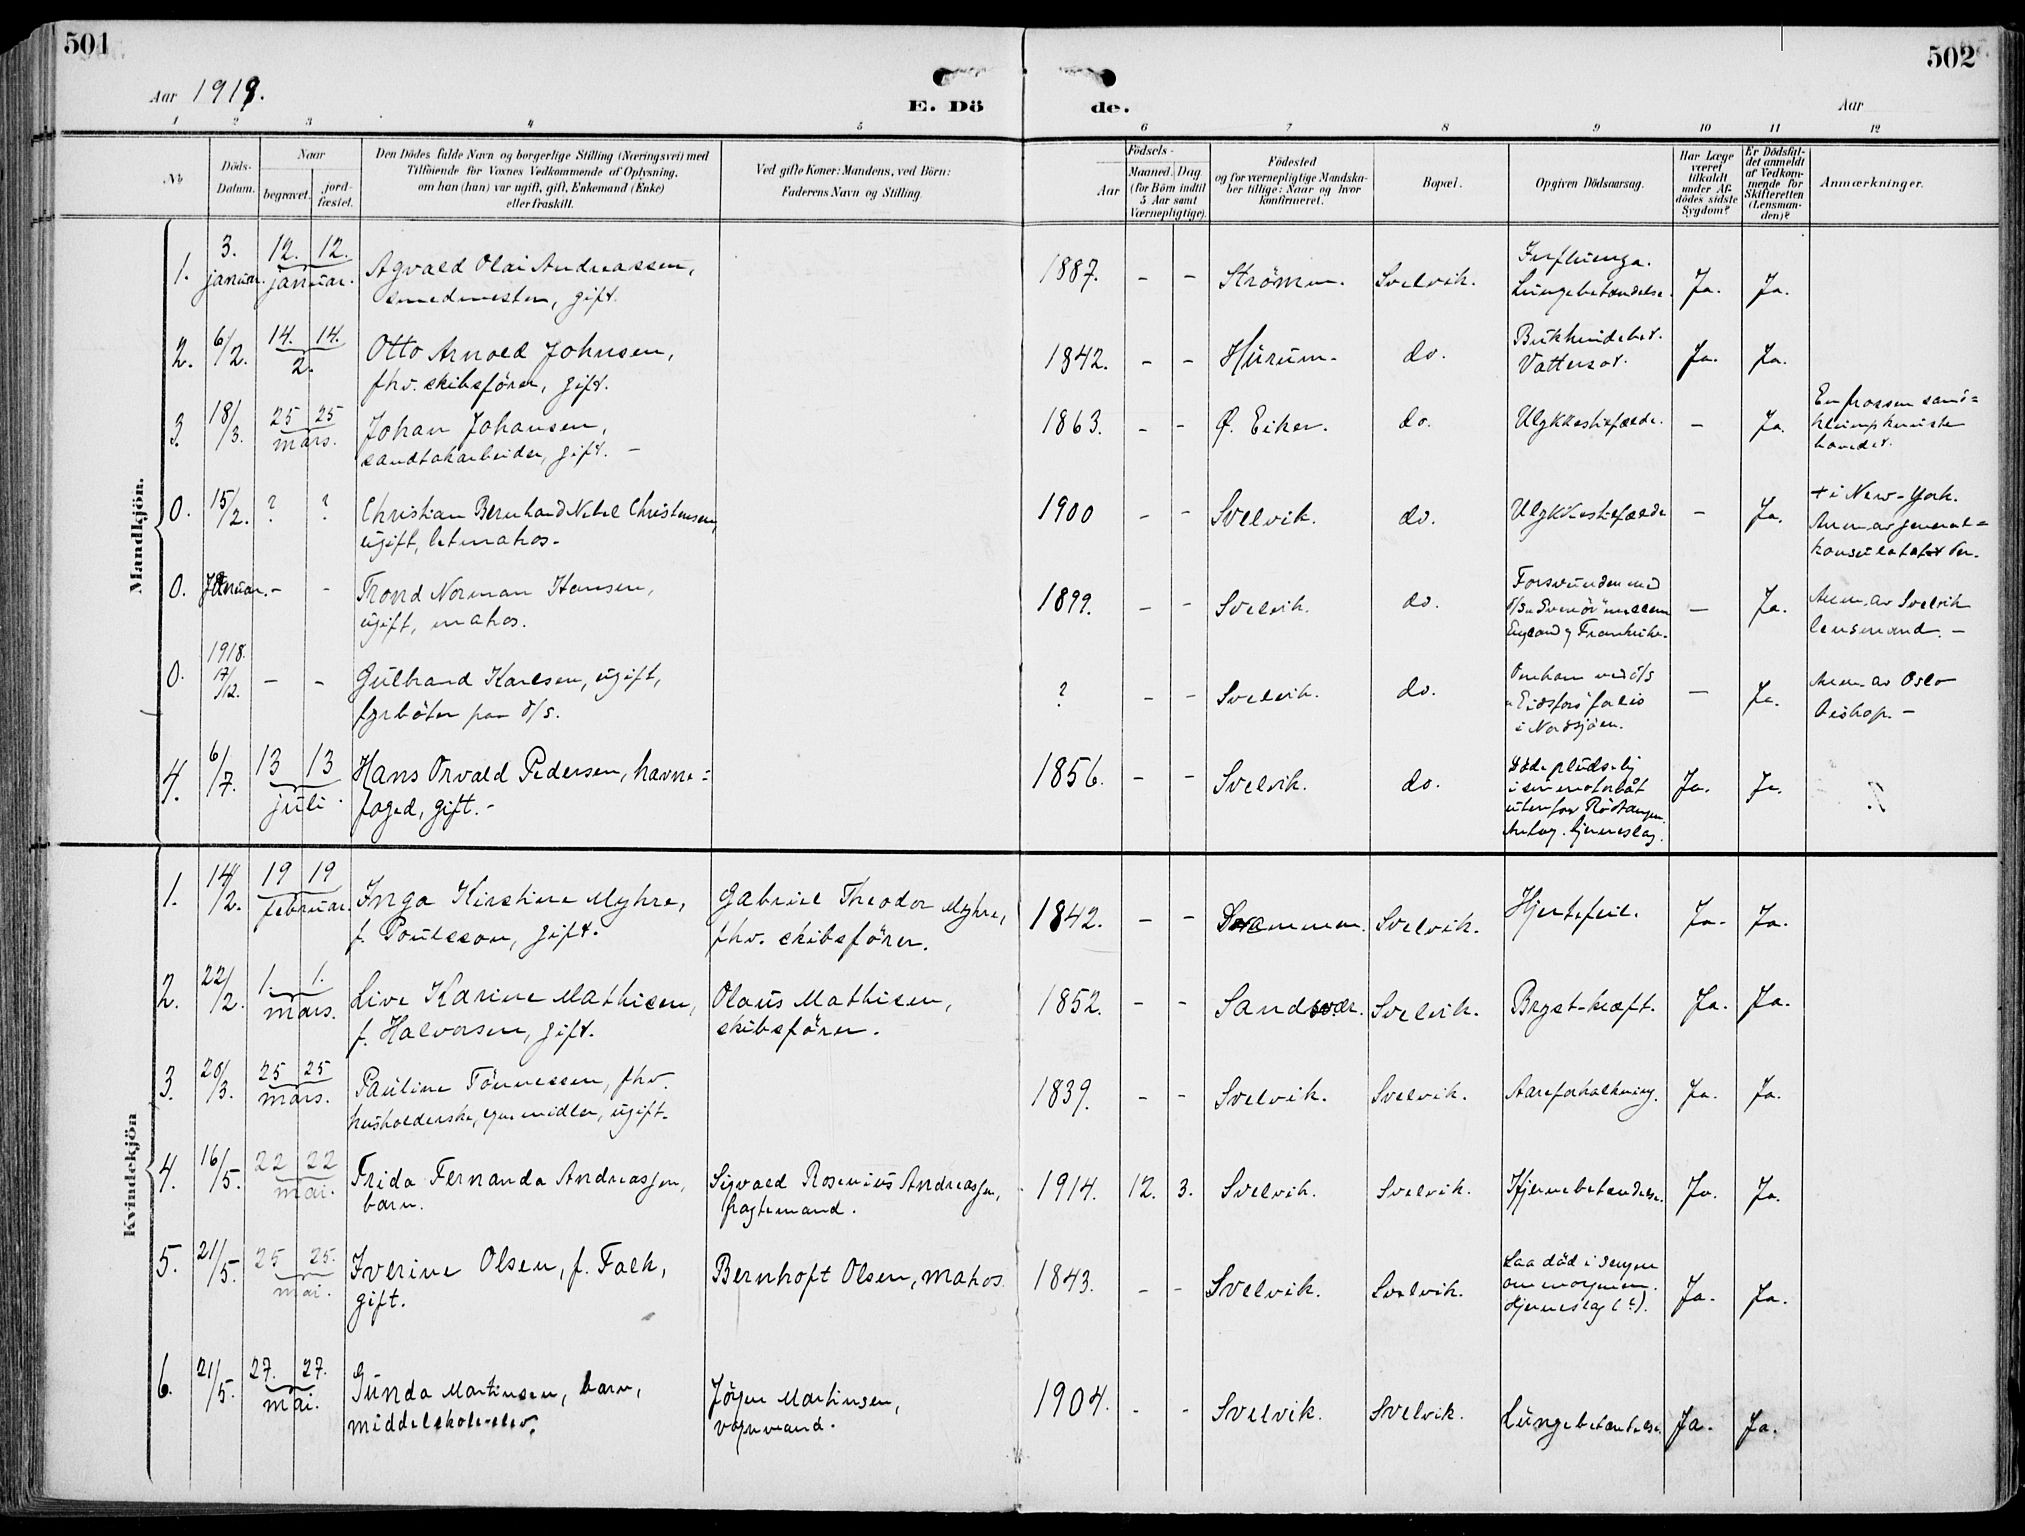 501
502
Aar 1919.
E. Dö de.
Aar
1 2 3 4 5 6 7 8 9 10 11 12
No
Döds-
Datum.
Naar
begravet.
jord-
fæstet.
Den Dödes fulde Navn og borgerlige Stilling (Næringsvei) med
Tilföiende for Voxnes Vedkommende af Oplysning,
om han (hun) var ugift, gift, Enkemand (Enke)
eller fraskilt.
Ved gifte Koner: Mandens, ved Börn:
Faderens Navn og Stilling.
Födsels-
Aar
Maaned. Dag.
(for Börn indtil
5 Aar samt
Værnepligtige).
Födested
og for værnepligtige Mandska-
ber tillige: Naar og hvor
konfirmeret.
Bopæl.
Opgiven Dödsaarsag.
Har Læge
været
tilkaldt
under Af-
dödes sidste
Sygdom?
Er Dödsfal-
det anmeldt
af Vedkom-
mende for
Skifteretten
(Lensman-
den)?
Anmærkninger.
Mandkjön.
1. 3. januar. 12. 12. januar.
Agvald Olai Andreassen,
smedmester, gift.
1887. - - Strömm. Svelvik.
Influenza.
Lungebetændelse.
Ja. Ja.
2. 6/2. 14. 14. 2.
Otto Arnold Johnsen,
fhv. skibsförer, gift.
1842. - - Hurum. do.
Bukhindebet.
Vattersot.
Ja. Ja.
3. 18/3. 25 25 mars.
Johan Johansen,
sandtakarbeider, gift. -
1863. - - Ø. Eiker. do. Ulykkestilfælde. - Ja.
En frossen sand=
klump knuste
hovedet.
0. 15/2. ? ?
Christian Bernhard Nebel Christensen,
ugift, letmatros.
1900 - - Svelvik. do. Ulykkestilfælde - Ja.
+ i New-York.
Anm. av general=
konsulatet der.
0. Januar. - -
Trond Norman Hansen,
ugift, matros.
1899. - - Svelvik. do.
Forsvunden med
England og Frankrike.
- Ja.
Anm. av Svelvik
lensmand. -
0. 1918. 17/12. - -
Gulbrand Karlsen, ugift,
fyrböter paa d/s.
? - - Svelvik. do.
Omkom ved d/s
"Eidsfos" forlis
i Nordsjöen.
- Ja.
Anm. av Oslo
bishop. -
4. 6/7. 13 13 juli.
Hans Orvald Pedersen, havne=
foged, gift. -
1856. - - Svelvik. do.
Döde pludselig
i sin motorbåt
utenfor Rödtangen.
Antag. hjerneslag.
Ja. Ja.
Kvindekjön
1. 14/2. 19 19 februar.
Inga Kirstine Myhre,
f. Poulsson, gift.
Gabriel Theodor Myhre,
fhv. skibsförer.
1842. - - Drammen. Svelvik. Hjertefeil. Ja. Ja.
2. 22/2. 1. 1. mars.
Live Karine Mathisen,
f. Halvorsen, gift.
Olaus Mathisen,
skibsförer.
1852. - - Sandsvær. Svelvik. Bryst-kræft. Ja. Ja.
3. 20/3. 25 25 mars.
Pauline Tönnessen, fhv.
husholderske, egne midler, ugift.
1839. - - Svelvik. Svelvik. Aareforkalkning. Ja. Ja.
4. 16/5. 22 22 mai.
Frida Fernanda Andreassen,
barn.
Sigvald Rosenius Andreassen,
fragtemand.
1914. 12. 3. Svelvik. Svelvik. Hjernebetændelse. Ja. Ja.
5. 21/5. 25 25. mai.
Iverine Olsen, f. Falk,
gift.
Bernhoft Olsen, matros.
1843. - - Svelvik. Svelvik.
Laa död i sengen
om morgenen.
Hjerneslag (?).
Ja. Ja.
6. 21/5. 27. 27. mai.
Gunda Martinsen, barn,
middelskole-elev.
Jörgen Martinsen,
vognmand.
1904. - - Svelvik. Svelvik. Lungebetændelse. Ja. Ja.